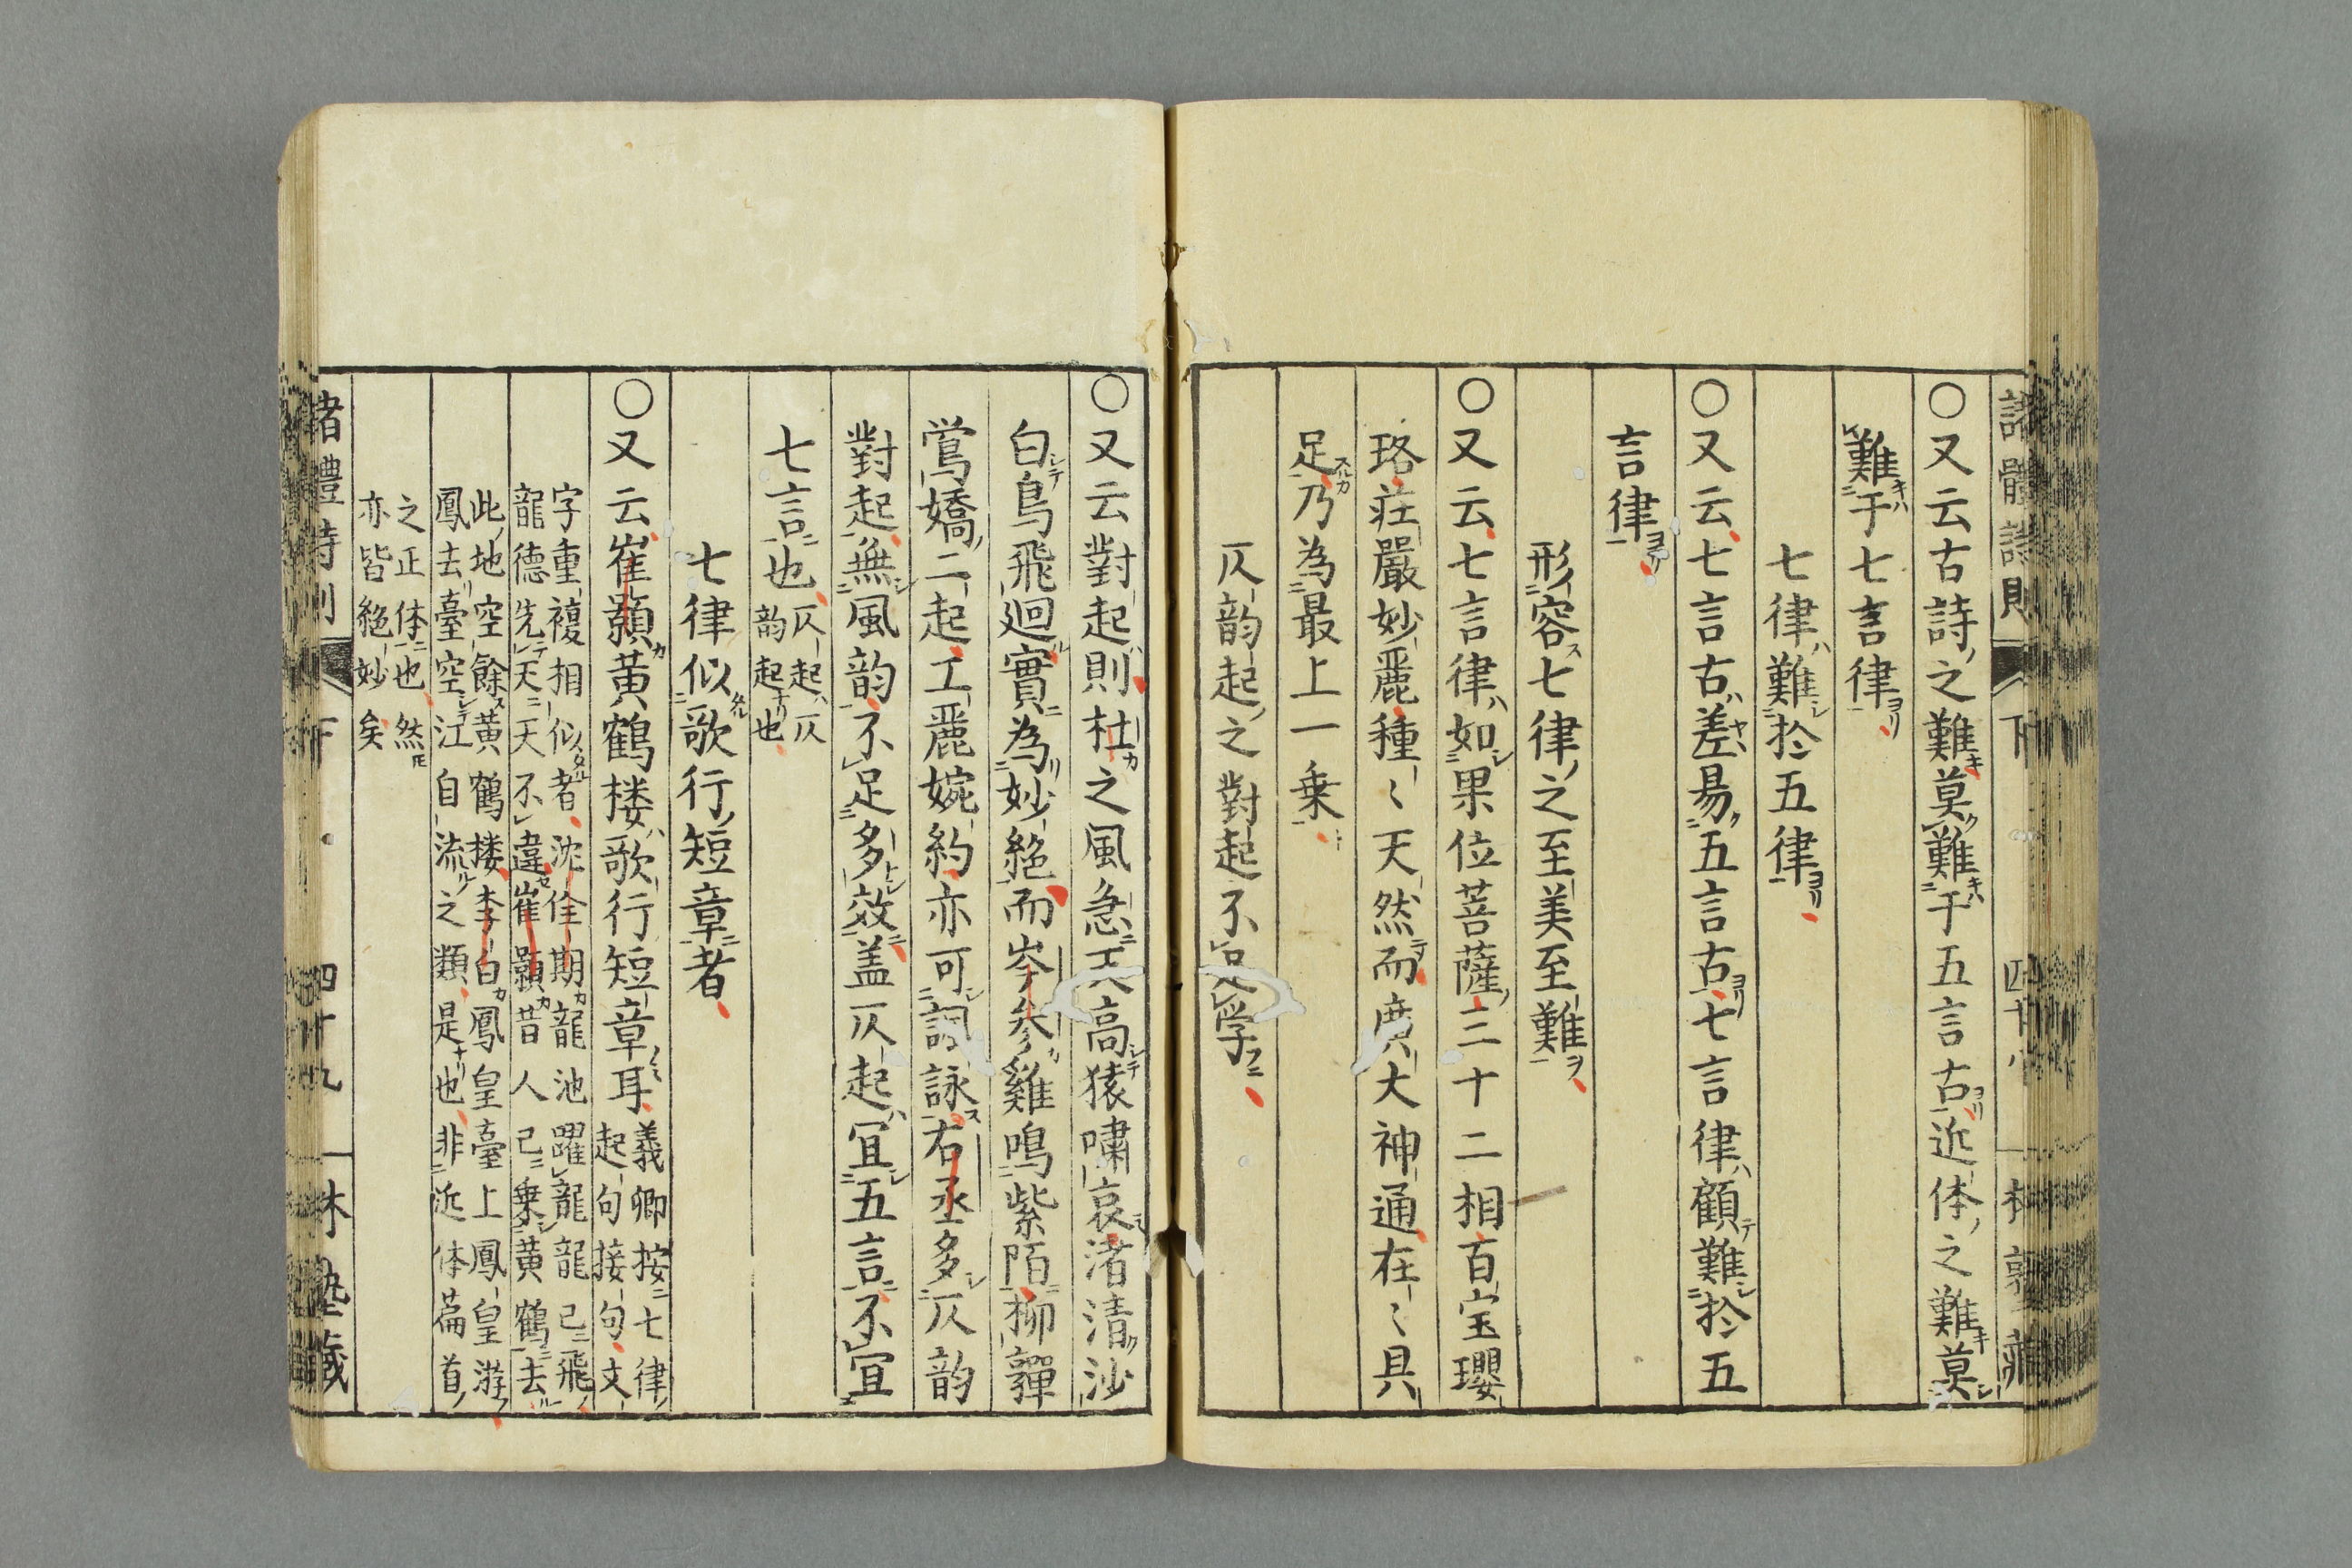 〇又云古詩之難莫難于五言古近体之難莫
難于七言律
七律難於五律
〇又云七言古差易五言古七言律顧難於五
言律
形容七律之至美至難
〇又云七言律如果位菩薩三十二相百宝瓔
珞莊嚴妙麗種〻天然而廣大神通在〻具
足乃為最上一乗
仄韵起之對起不足学
〇又云對起則杜之風急天高猿嘯哀渚清沙
白鳥飛廻實為妙絶而岑參雞鳴紫陌柳嚲
鶯嬌二起工麗婉約亦可諷詠右丞多仄韵
對起無風韵不足多效盖仄起宜五言不宜
七言也仄起仄
韵起也
七律似歌行短章者
〇又云崔顥黄鶴楼歌行短章耳義卿按七律
起句接句文
字重複相似者沈佺期龍池躍龍龍已飛
龍德先天天不違崔顥昔人已乗黄鶴去
此地空餘黄鶴楼李白鳳皇臺上鳳皇遊
鳳去臺空江自流之類是也非近体篇首
之正体也然
亦皆絶妙矣
諸體詩則 下 四十九 林塾藏